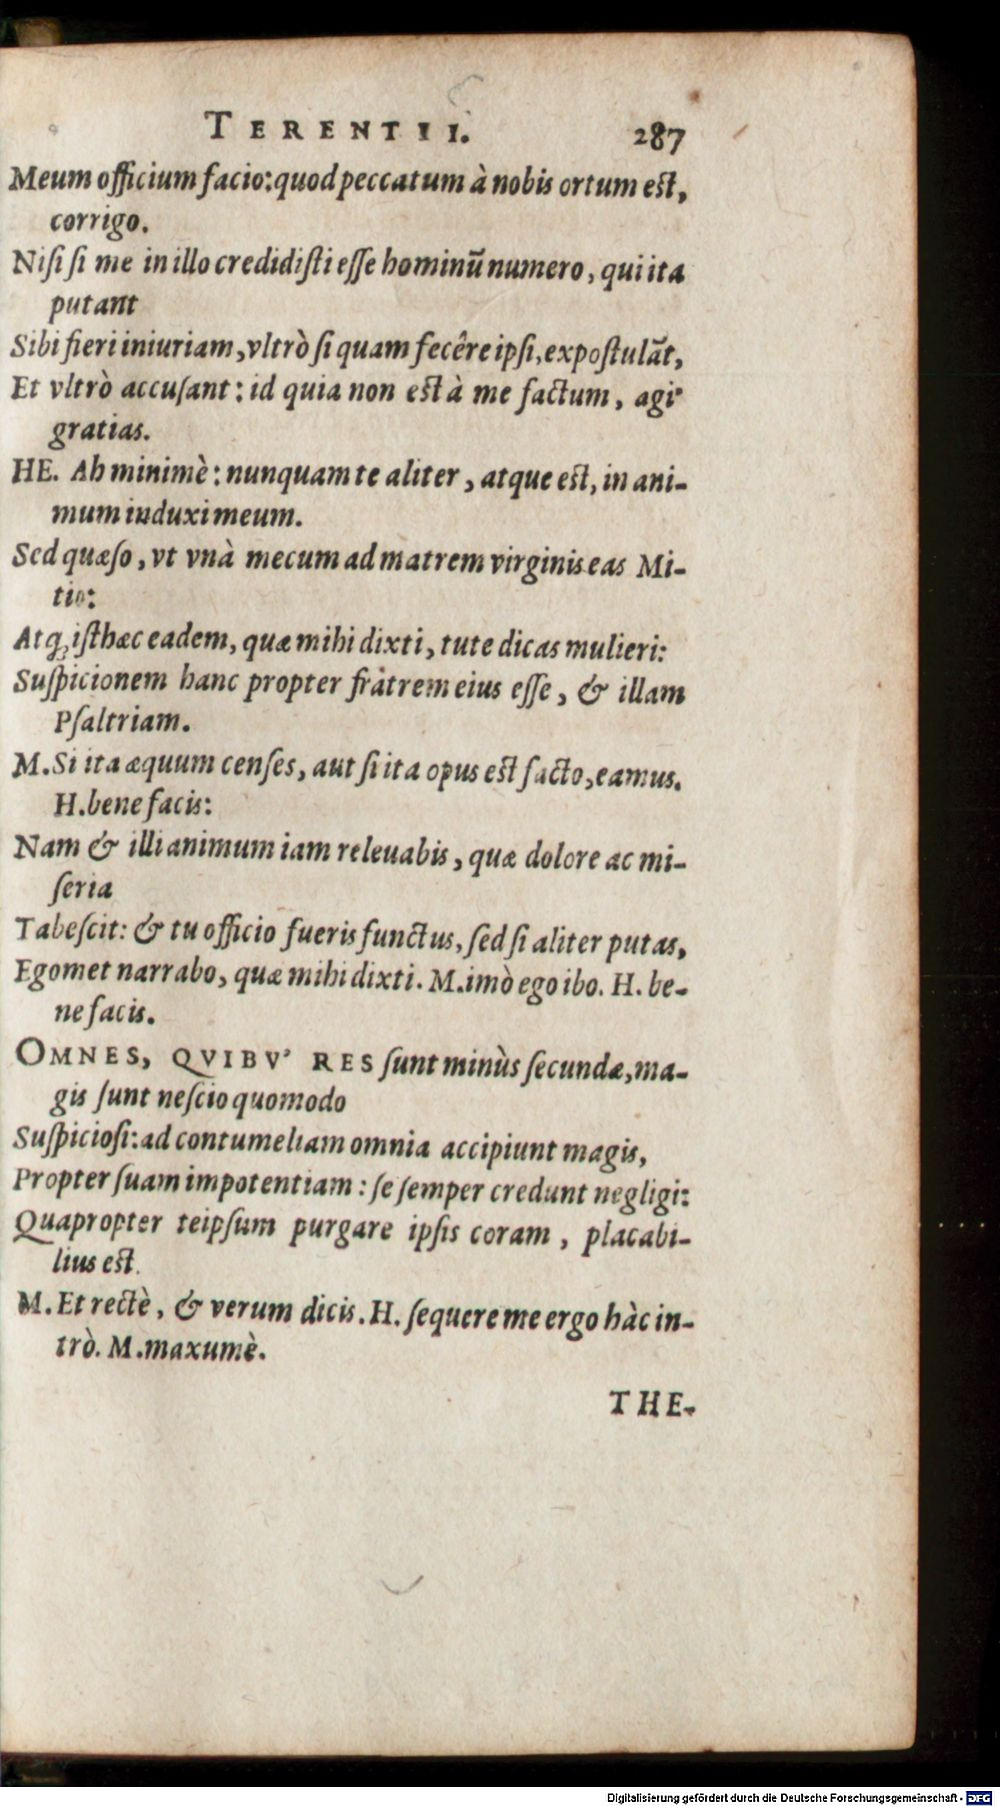 TERENTII. 287
Meum officium facio: quod peccatum à nobis ortum est,
corrigo.
Nisi si me in illo credidisti esse hominū numero, qui ita
putant
Sibi fieri iniuriam, vltrò si quam fecêre ipsi, expostulāt,
Et vltrò accusant: id quia non est à me factum, agis
gratias.
HE. Ah minimè: nunquam te aliter, atque est, in ani-
mum induxi meum.
Sed quæso, vt vnà mecum ad matrem virginis eas Mi-
tio:
Atq; isthæc eadem, quæ mihi dixti, tute dicas mulieri:
Suspicionem hanc propter fràtrem eius esse, & illam
Psaltriam.
M. Si ita æquum censes, aut si ita opus est facto, eamus.
H. bene facis:
Nam & illi animum iam releuabis, quæ dolore ac mi-
seria
Tabescit: & tu officio fueris functus, sed si aliter putas,
Egomet narrabo, quæ mihi dixti. M. imò ego ibo. H. be-
ne facis.
OMNES, QVIBV' RES sunt minùs secundæ, ma-
gis sunt nescio quomodo
Suspiciosi: ad contumeliam omnia accipiunt magis,
Propter suam impotentiam: se semper credunt negligi:
Quapropter teipsum purgare ipsis coram, placabi-
lius est.
M. Et rectè, & verum dicis. H. sequere me ergo hàc in-
trò. M. maxumè.
THE-
Digitalisierung gefördert durch die Deutsche Forschungsgemeinschaft - DFG